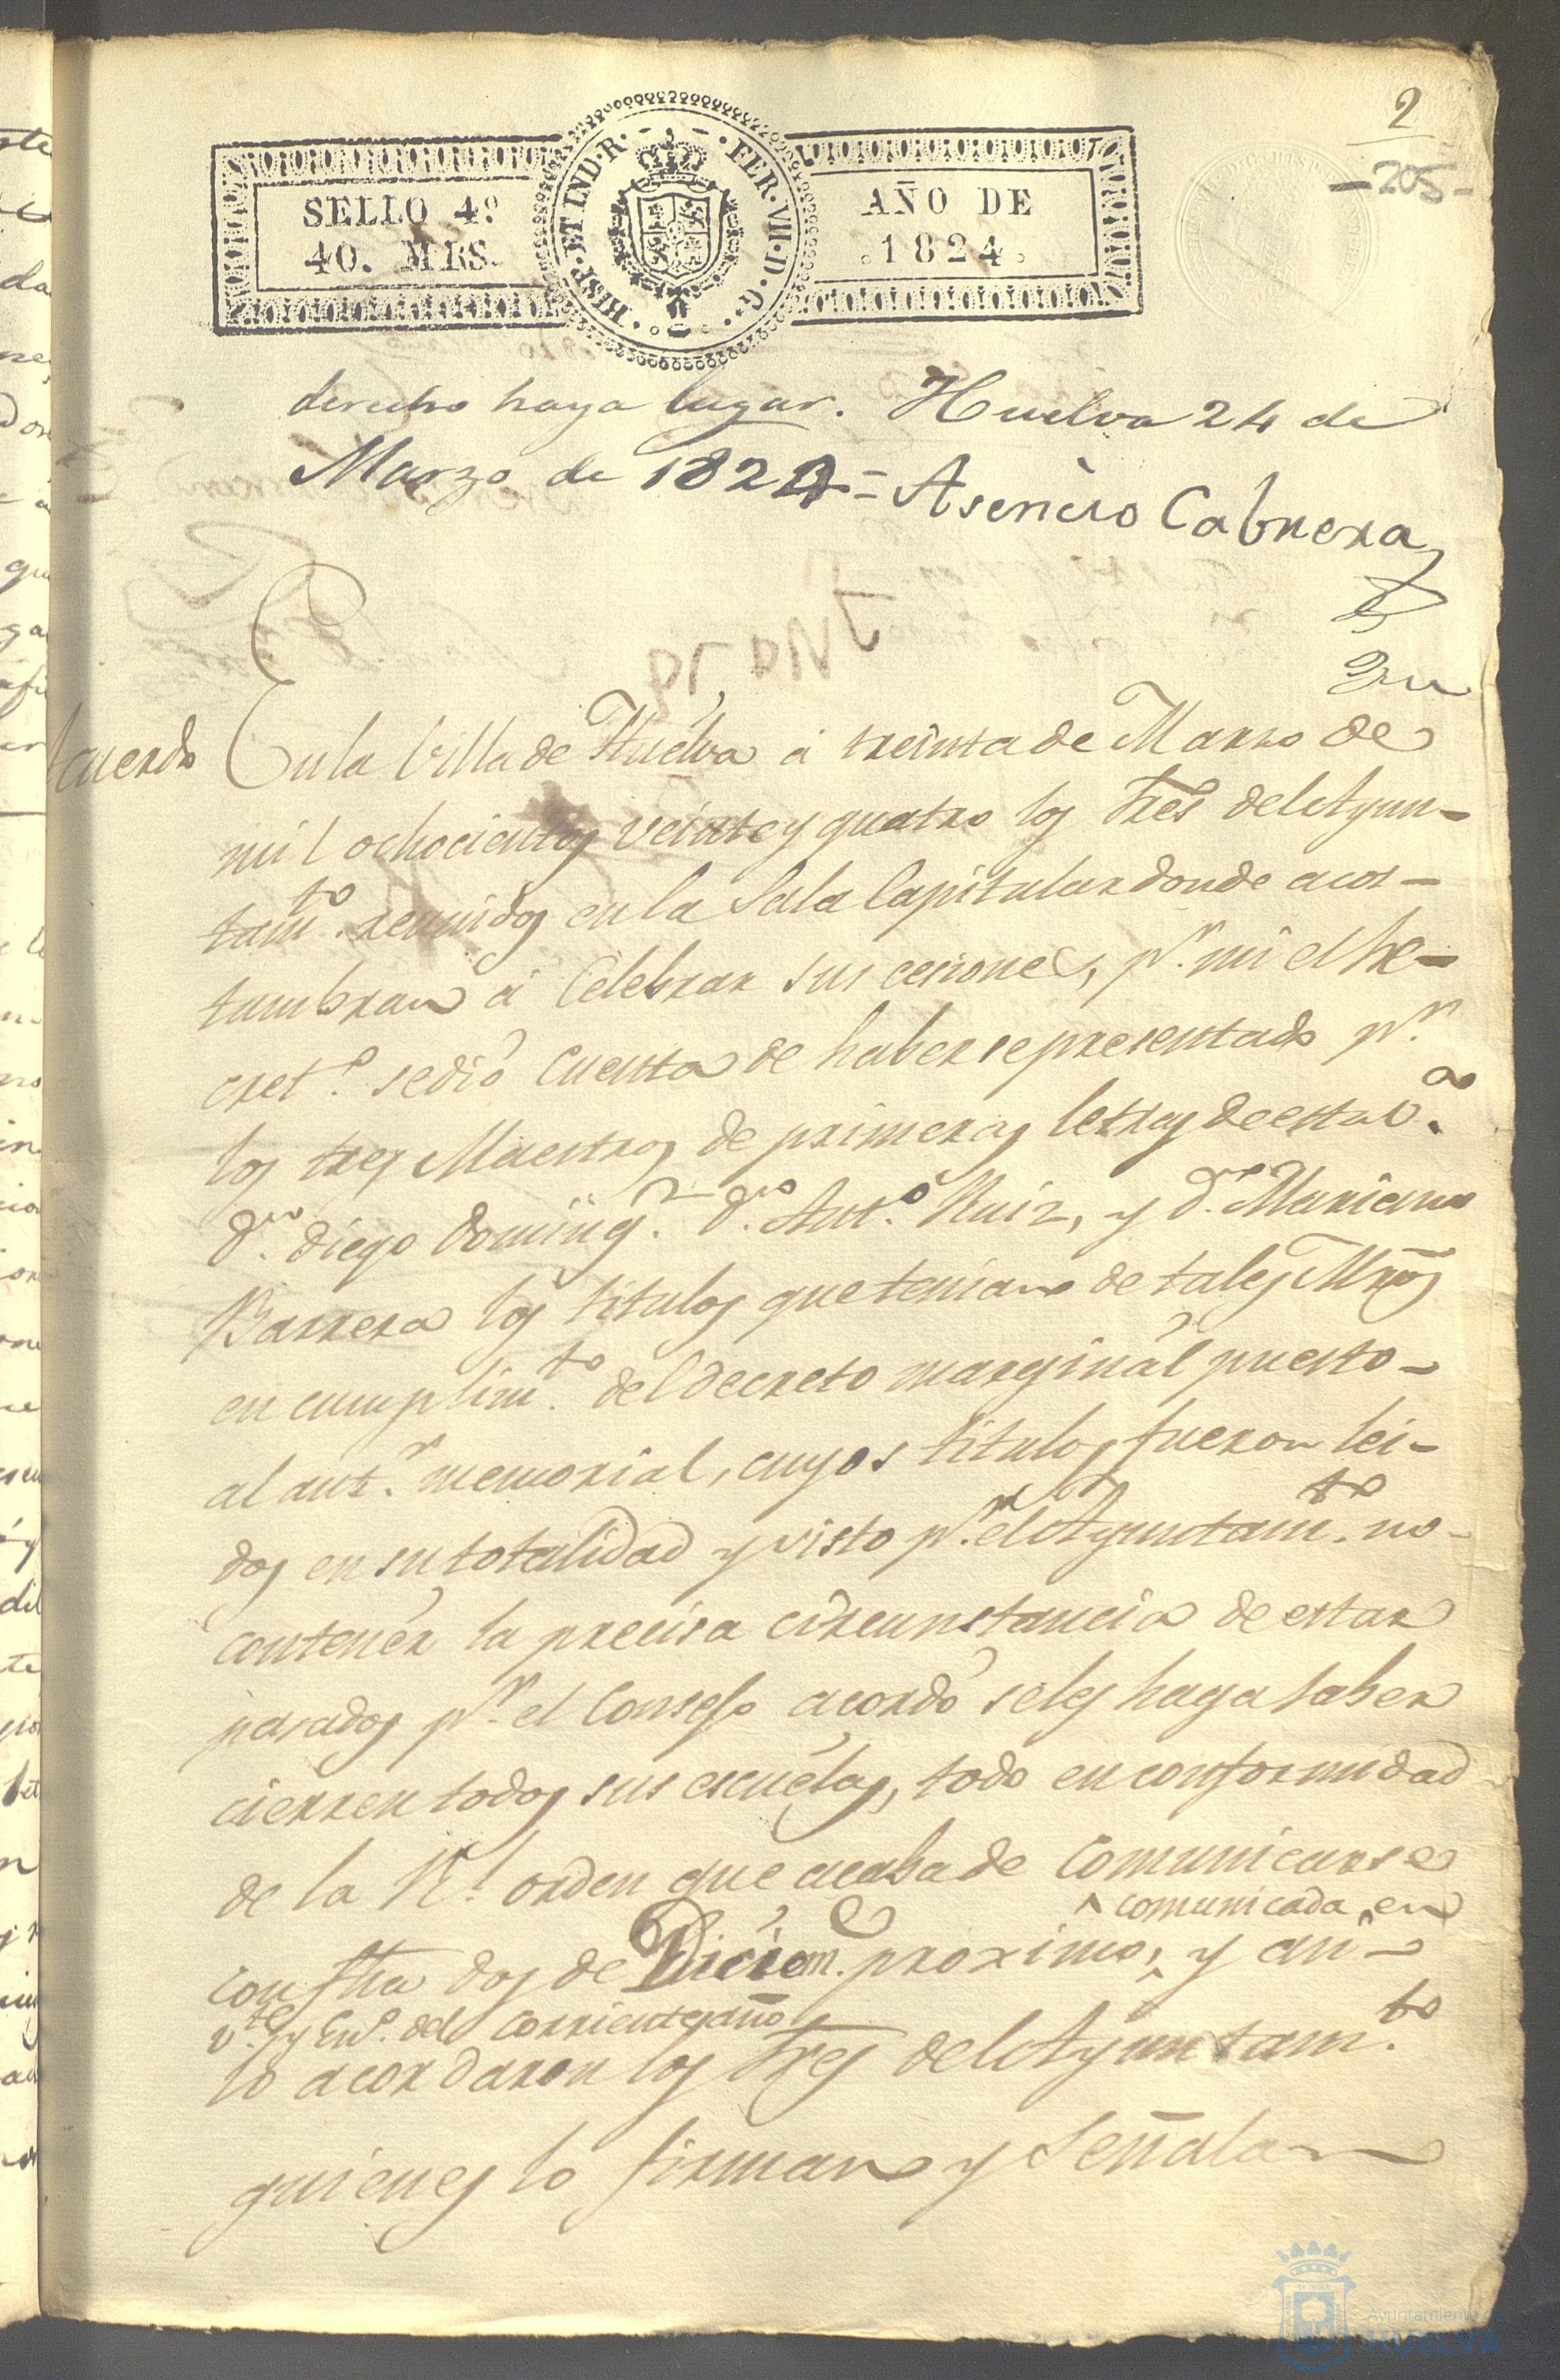 2
-205-
SELLO 4º
40. MRS.
HISP. ET IND. R. FER. VII. D. G.
AÑO DE
.1824.
derecho haya lugar. Huelva 24 de
Marzo de 1824 = Asencio Cabrera
Acuerdo En la Villa de Huelva á treinta de Marzo de
mil ochocientos veinte y quatro los Sres del Ayun-
tamto. reunidos en la Sala Capitular donde acos-
tumbran á celebrar sus cesiones, pr. mi el Se-
creto. se dió cuenta de haberse presentado pr.
los tres Maestros de primeras letras de esta va.
Dn. Diego Doming.z Dn. Anto. Ruiz, y Dn. Mariano
Barrera los titulos que tenian de tales Mros
en cumplimto. del decreto marginal puesto
al antr. memorial, cuyos titulos fueron lei-
dos en su totalidad y visto pr. el Ayuntamto. no
contener la precisa circunstancia de estar
pasados pr. el Consejo acordó se les haga saber
cierren todos sus escuelas, todo en conformidad
de la Rl. orden que acaba de comunicarse
^ comunicada en
con fha dos de Diciem.e proximo, ^ y asi
vte. y Eno. del corriente año
lo acordaron los Sres del Ayuntamto.
quienes lo firman y señalan
Ayuntamiento de
HUELVA